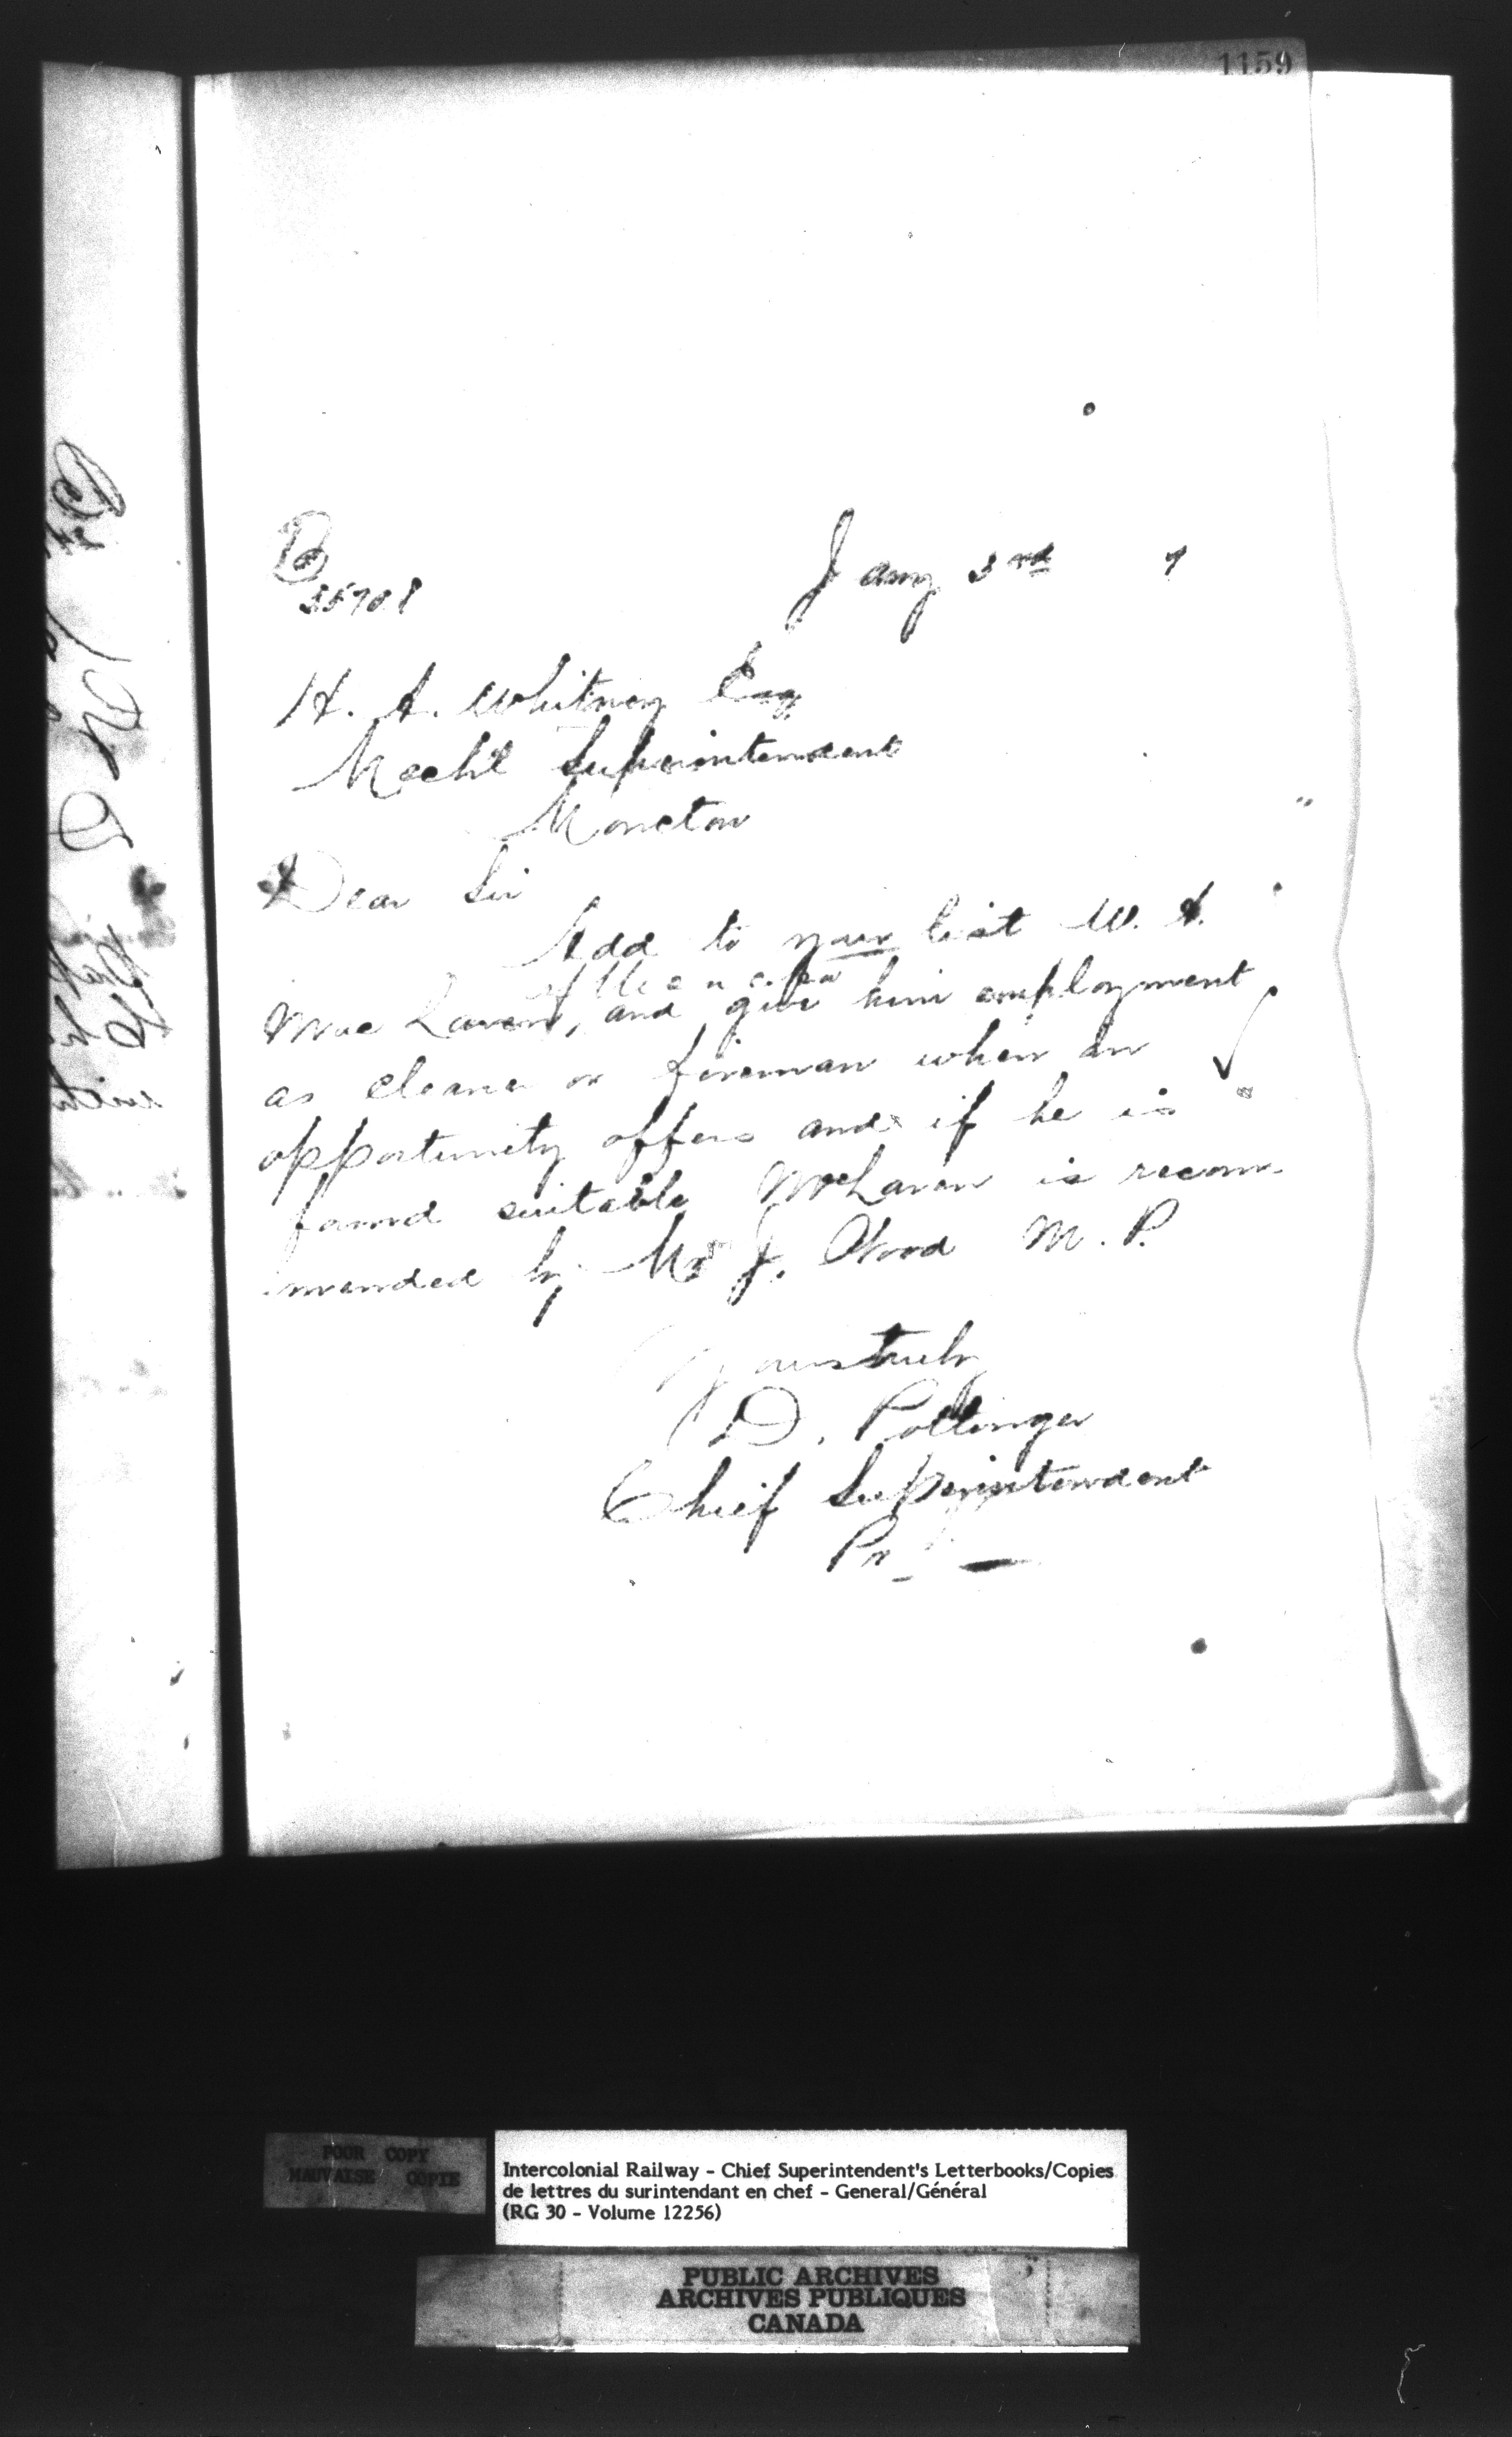 1159
B
35708
Jany 3rd 7
H. A. Whitney Esq
Mechl Superintendent
Moncton
Dear Sir
Add to your list W. A.
MacLaren, and give him employment
as cleaner or fireman when an
opportunity offers and if he is
found suitable McLaren is recom-
mended by Mr J. Wood M. P.
Yours truly
D. Pottinger
Chief Superintendent
Pr
POOR COPY
MAUVAISE COPIE
Intercolonial Railway - Chief Superintendent's Letterbooks/Copies
de lettres du surintendant en chef - General/Général
(RG 30 - Volume 12256)
PUBLIC ARCHIVES
ARCHIVES PUBLIQUES
CANADA